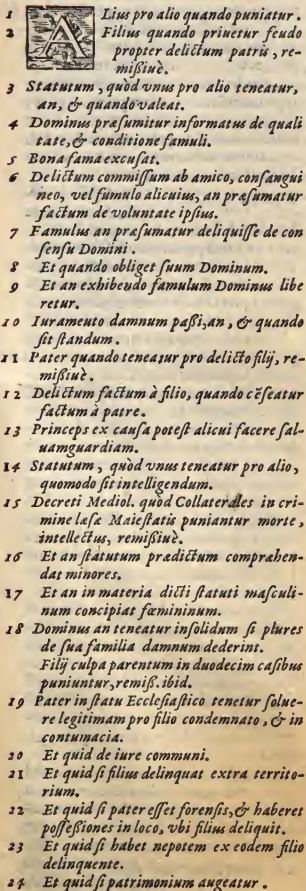 1 ALius pro alio quando puniatur.
2 Filius quando priuetur feudo
propter delictum patris, re-
mißiuè.
3 Statutum, quòd vnus pro alio teneatur,
an, & quando valeat.
4 Dominus præsumitur informatus de quali
tate, & conditione famuli.
5 Bona fama excusat.
6 Delictum commissum ab amico, consangui
neo, vel fumulo alicuius, an præsumatur
factum de voluntate ipsius.
7 Famulus an præsumatur deliquisse de con
sensu Domini.
8 Et quando obliget suum Dominum.
9 Et an exhibendo famulum Dominus libe
retur.
10 Iuramento damnum paßi, an, & quando
sit standum.
11 Pater quando teneatur pro delicto filij, re-
mißiuè.
12 Delictum factum à filio, quando cēseatur
factum à patre.
13 Princeps ex causa potest alicui facere sal-
uamguardiam.
14 Statutum, quòd vnus teneatur pro alio,
quomodo sit intelligendum.
15 Decreti Mediol. quòd Collaterales in cri-
mine læsæ Maiestatis puniantur morte,
intellectus, remißiuè.
16 Et an statutum prædictum comprahen-
dat minores.
17 Et an in materia dicti statuti masculi-
num concipiat fœmininum.
18 Dominus an teneatur insolidum si plures
de sua familia damnum dederint.
Filij culpa parentum in duodecim casibus
puniuntur, remiß. ibid.
19 Pater in statu Ecclesiastico tenetur solue-
re legitimam pro filio condemnato, & in
contumacia.
20 Et quid de iure communi.
21 Et quid si filius delinquat extra territo-
rium.
22 Et quid si pater esset forensis, & haberet
possessiones in loco, vbi filius deliquit.
23 Et quid si habet nepotem ex eodem filio
delinquente.
24 Et quid si patrimonium augeatur.